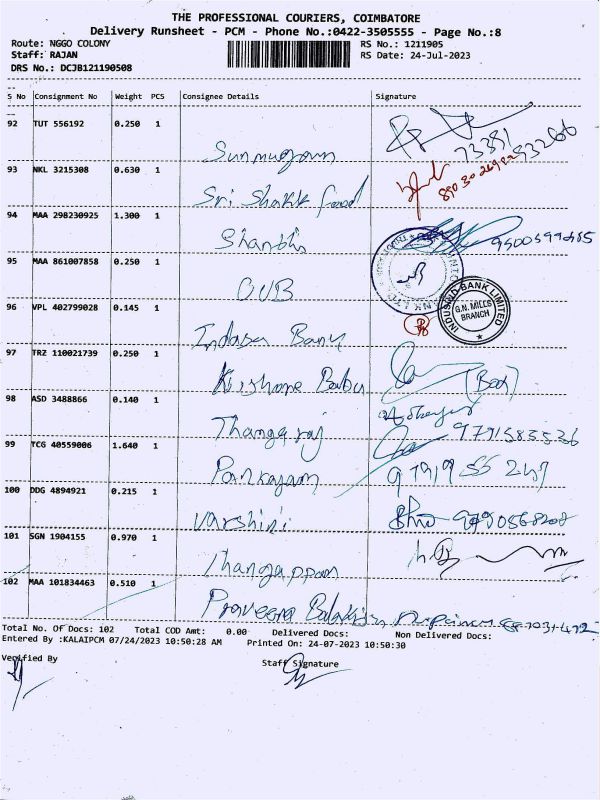 THE PROFESSIONAL COURIERS, COIMBATORE
Delivery Runsheet - PCM - Phone No.:0422-3505555 - Page No.:8
Route: NGGO COLONY RS No.: 1211905
Staff: RAJAN RS Date: 24-Jul-2023
DRS No.: DCJB121190508
S No Consignment No Weight PCS Consignee Details Signature
92 TUT 556192 0.250 1
Sunmugam
73391
93266
93 NKL 3215308 0.630 1
Sri Shakk food
94 MAA 298230925 1.300 1
Shanthi
95 MAA 861007858 0.250 1
OUB
INDUSIND BANK LIMITED
G.N. MILLS
BRANCH
96 VPL 402799028 0.145 1
97 TRZ 110021739 0.250 1
Kirshore Babu
98 ASD 3488866 0.140 1
Thangaraj 9791583536
99 TCG 40559006 1.640 1
Pankajam
100 DDG 4894921 0.215 1
Varshini
101 SGN 1904155 0.970 1
Thangappan
102 MAA 101834463 0.510 1
Praveena
Total No. Of Docs: 102 Total COD Amt: 0.00 Delivered Docs: Non Delivered Docs:
Entered By :KALAIPCM 07/24/2023 10:50:28 AM Printed On: 24-07-2023 10:50:30
Verified By Staff Signature